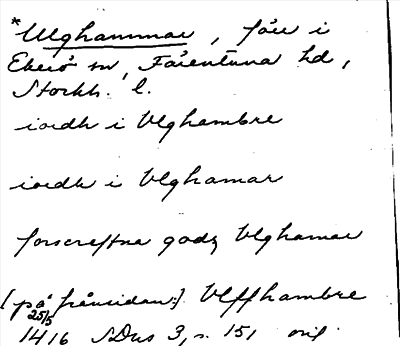 *Ulghammar, förr i
Ekerö sn, Färentuna hd,
Stockh. l.
iordh i Vlghambre
iordh i Vlghamar
forscreffne godz Vlghamar
[på frånsidan:] Vlffhambre
1416 25/5 SDns 3, s. 151 orig.